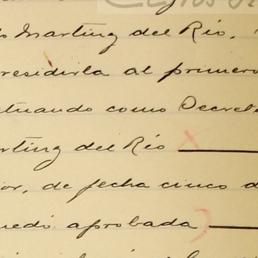 Martinz del Rio,
presidirla al primero
actuando como Secreta
rting del Rio
or, de fecha cinco d
uedó aprobada